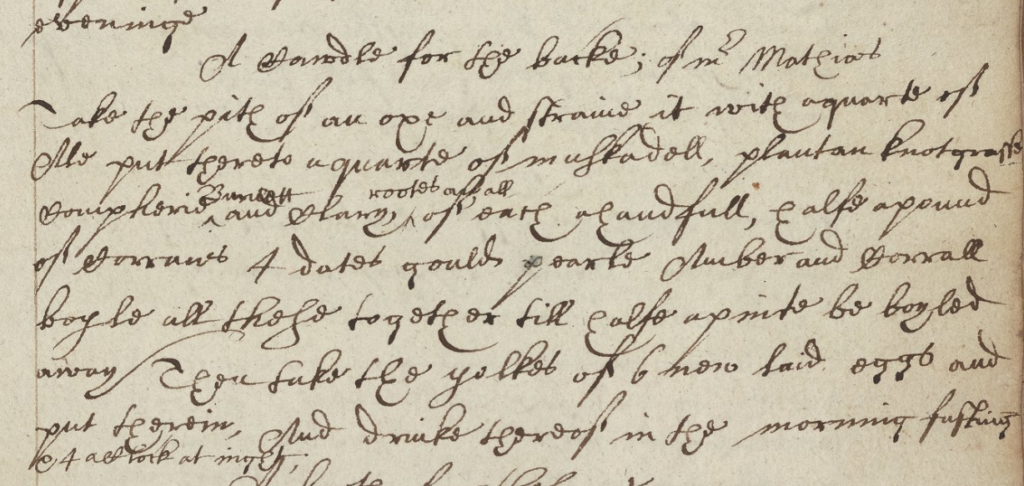 eveninge
A Cawdle for the backe; of mr Mathias
Take the pith of an oxe and straine it with a quarte of
Ale put thereto a quarte of muskadell, plantan knotgrasse
Burnett rootes and all
Compherie ^ and Clary ^ of each a handfull, halfe a pound
of Corrans 4 dates gould pearle Amber and Corrall
boyle all these together till halfe a pinte be boyled
away Then take the yolkes of 6 new laid eggs and
put therein, And drinke thereof in the morning fasting
& 4 a clock at night,